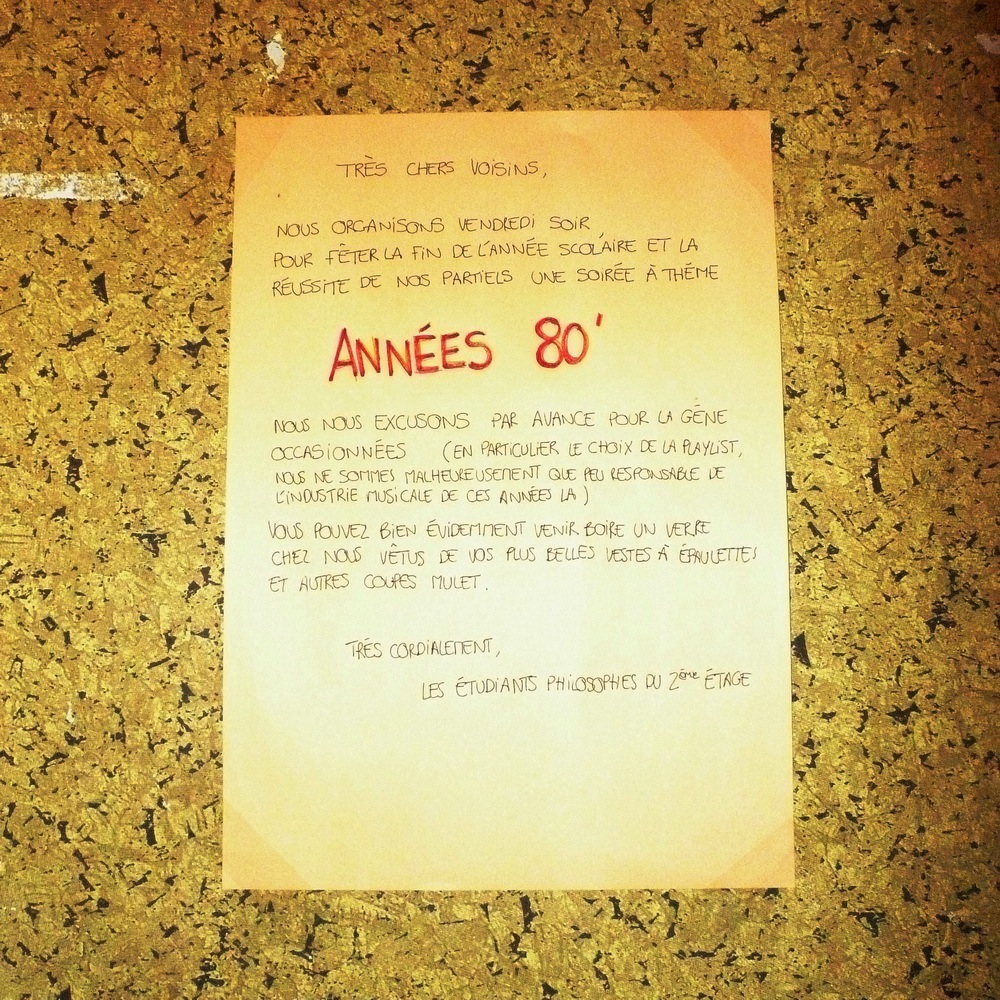 TRÈS CHERS VOISINS,
NOUS ORGANISONS VENDREDI SOIR,
POUR FÊTER LA FIN DE L'ANNÉE SCOLAIRE ET LA
RÉUSSITE DE NOS PARTIELS UNE SOIRÉE À THÈME
ANNÉES 80'
NOUS NOUS EXCUSONS PAR AVANCE POUR LA GÊNE
OCCASIONNÉES (EN PARTICULIER LE CHOIX DE LA PLAYLIST,
NOUS NE SOMMES MALHEUREUSEMENT QUE PEU RESPONSABLE DE
L'INDUSTRIE MUSICALE DE CES ANNÉES LA)
VOUS POUVEZ BIEN ÉVIDEMMENT VENIR BOIRE UN VERRE
CHEZ NOUS VÊTUS DE VOS PLUS BELLES VESTES À ÉPAULETTES
ET AUTRES COUPES MULET.
TRÈS CORDIALEMENT,
LES ÉTUDIANTS PHILOSOPHES DU 2ème ÉTAGE